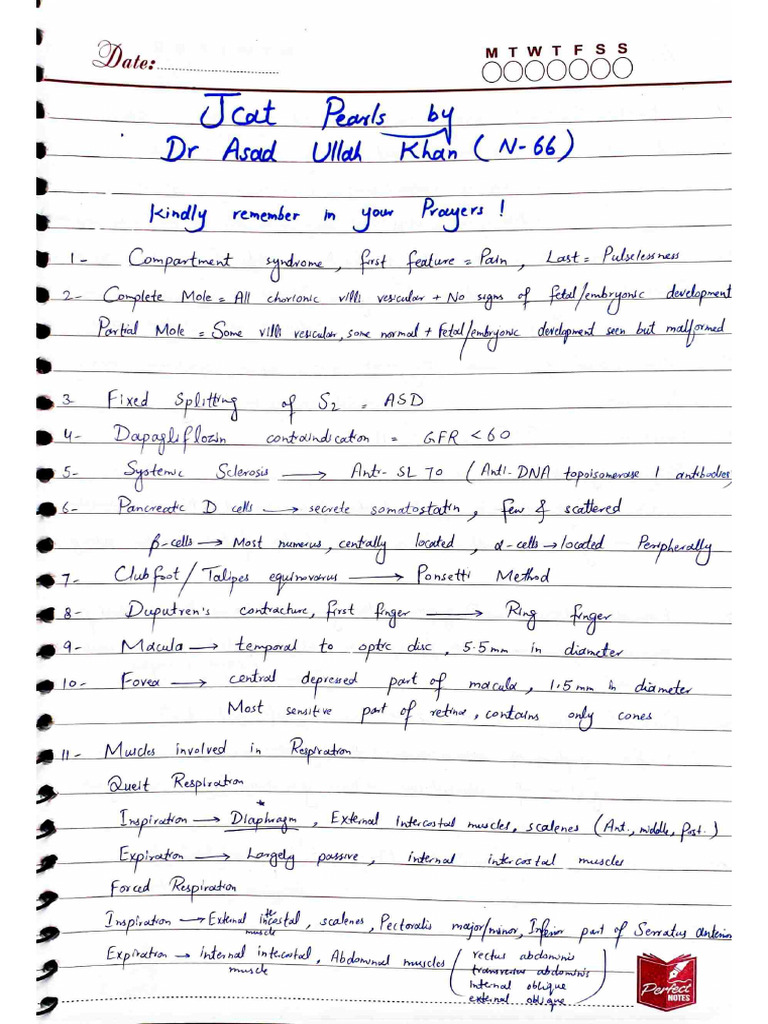 Date:
M T W T F S S
Jcat Pearls by
Dr Asad Ullah Khan (N-66)
Kindly remember in your Prayers!
1- Compartment syndrome, first feature = Pain, Last = Pulselessness
2- Complete Mole = All chorionic villi vesicular + No signs of fetal/embryonic development
Partial Mole = Some villi vesicular, some normal + Fetal/embryonic development seen but malformed
3- Fixed Splitting of S2 = ASD
4- Dapagliflozin containdication = GFR <60
5- Systemic Sclerosis → Anti-SL 70 (Anti-DNA topoisomerase 1 antibodies)
6- Pancreatic D cells → secrete somatostatin, few & scattered
β-cells → Most numerus, centrally located, α-cells → located Peripherally
7- Clubfoot/Talipes equinovarus → Ponsetti Method
8- Duputren's contracture, first finger → Ring finger
9- Macula → temporal to optic disc, 5.5mm in diameter
10- Fovea → central depressed part of macula, 1.5mm in diameter
Most sensitive part of retina, contains only cones
11- Muscles involved in Respiration
Queit Respiration
Inspiration → Diaphragm*, External intercostal muscles, scalenes (Ant., middle, Post.)
Expiration → Largely passive, internal intercostal muscles
Forced Respiration
Inspiration → External intecostal muscle, scalenes, Pectoralis major/minor, Inferior part of Serratus anterior
Expiration → internal intercostal muscle, Abdominal muscles (rectus abdominis
transversus abdominis
internal oblique
external oblique)
Perfect
NOTES